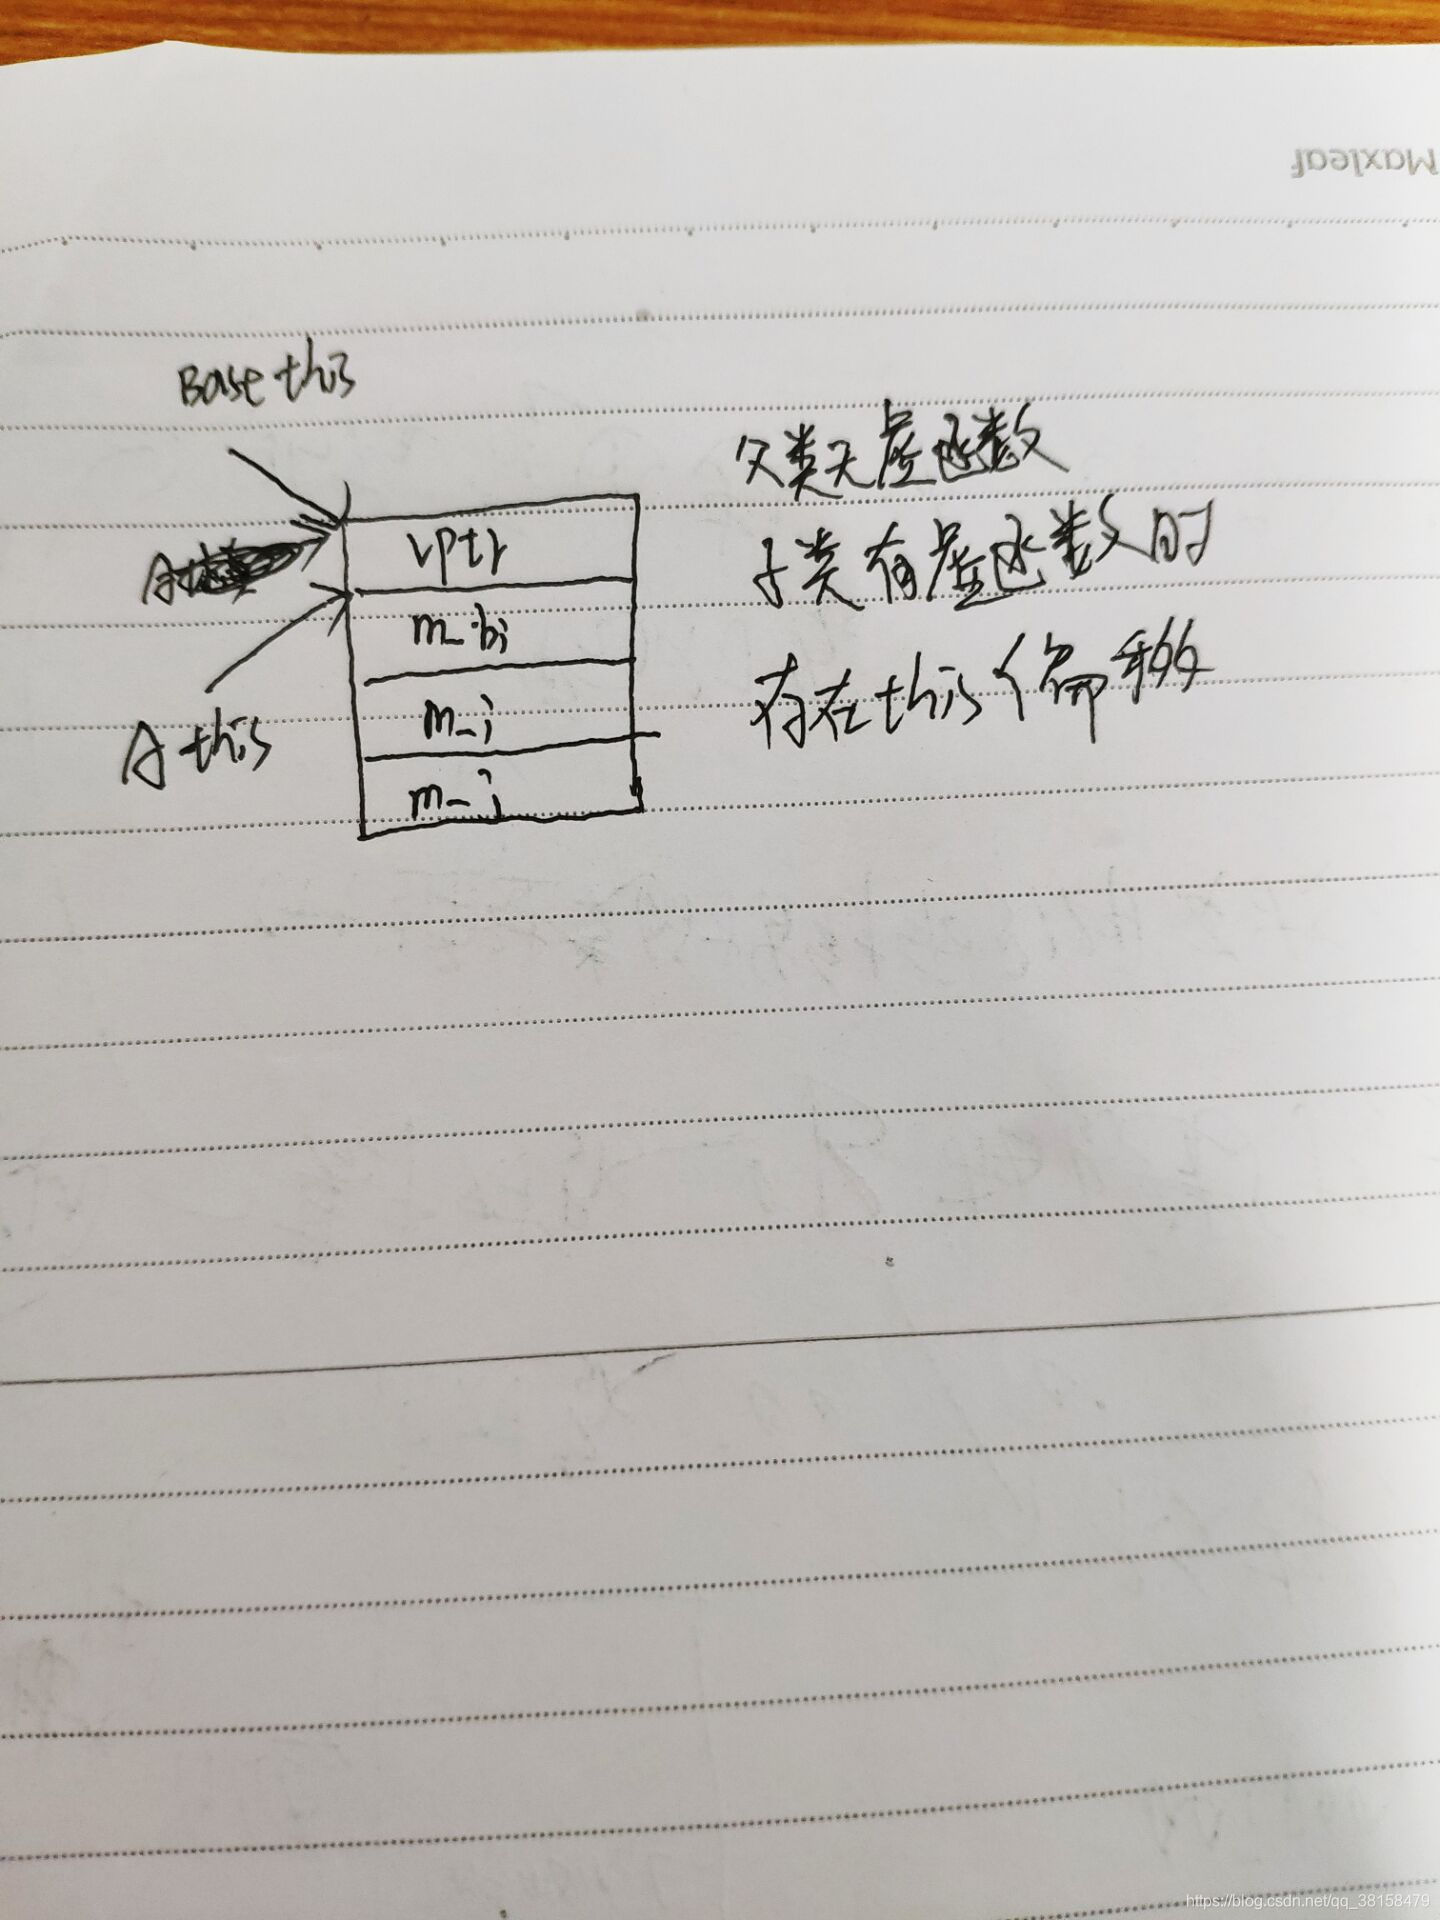 Maxleaf
Base this
父类无虚函数
子类有虚函数时
存在this偏移
vptr
m_bi
m_i
m_j
A this
https://blog.csdn.net/qq_38158479